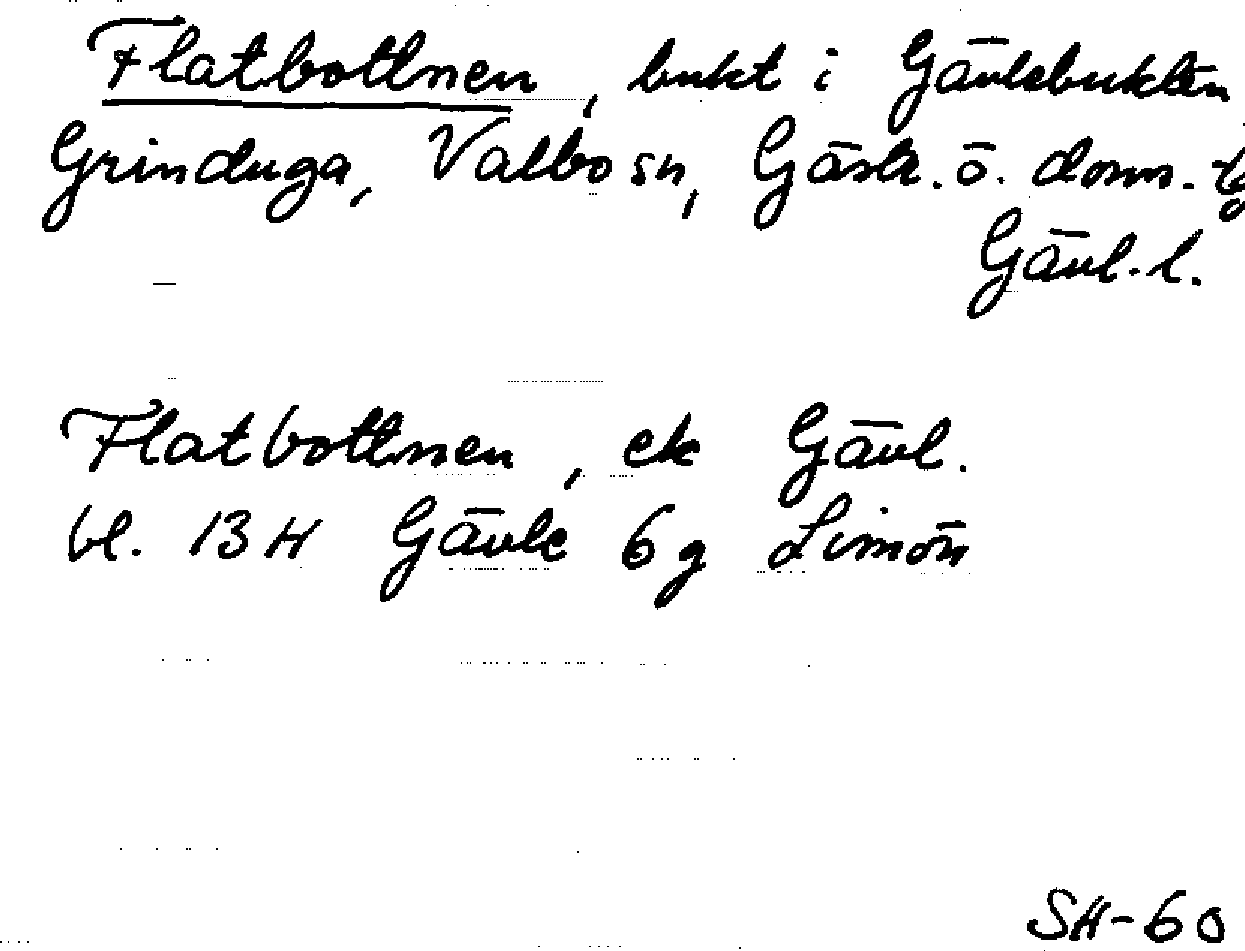 Flatbottnen, bukt i Gävlebukten
Grinduga, Valbo sn, Gästr. ö. doms.
Gävl. l.
Flatbottnen, ek Gävl.
bl. 13 H Gävle 6 g Limön
SH-60